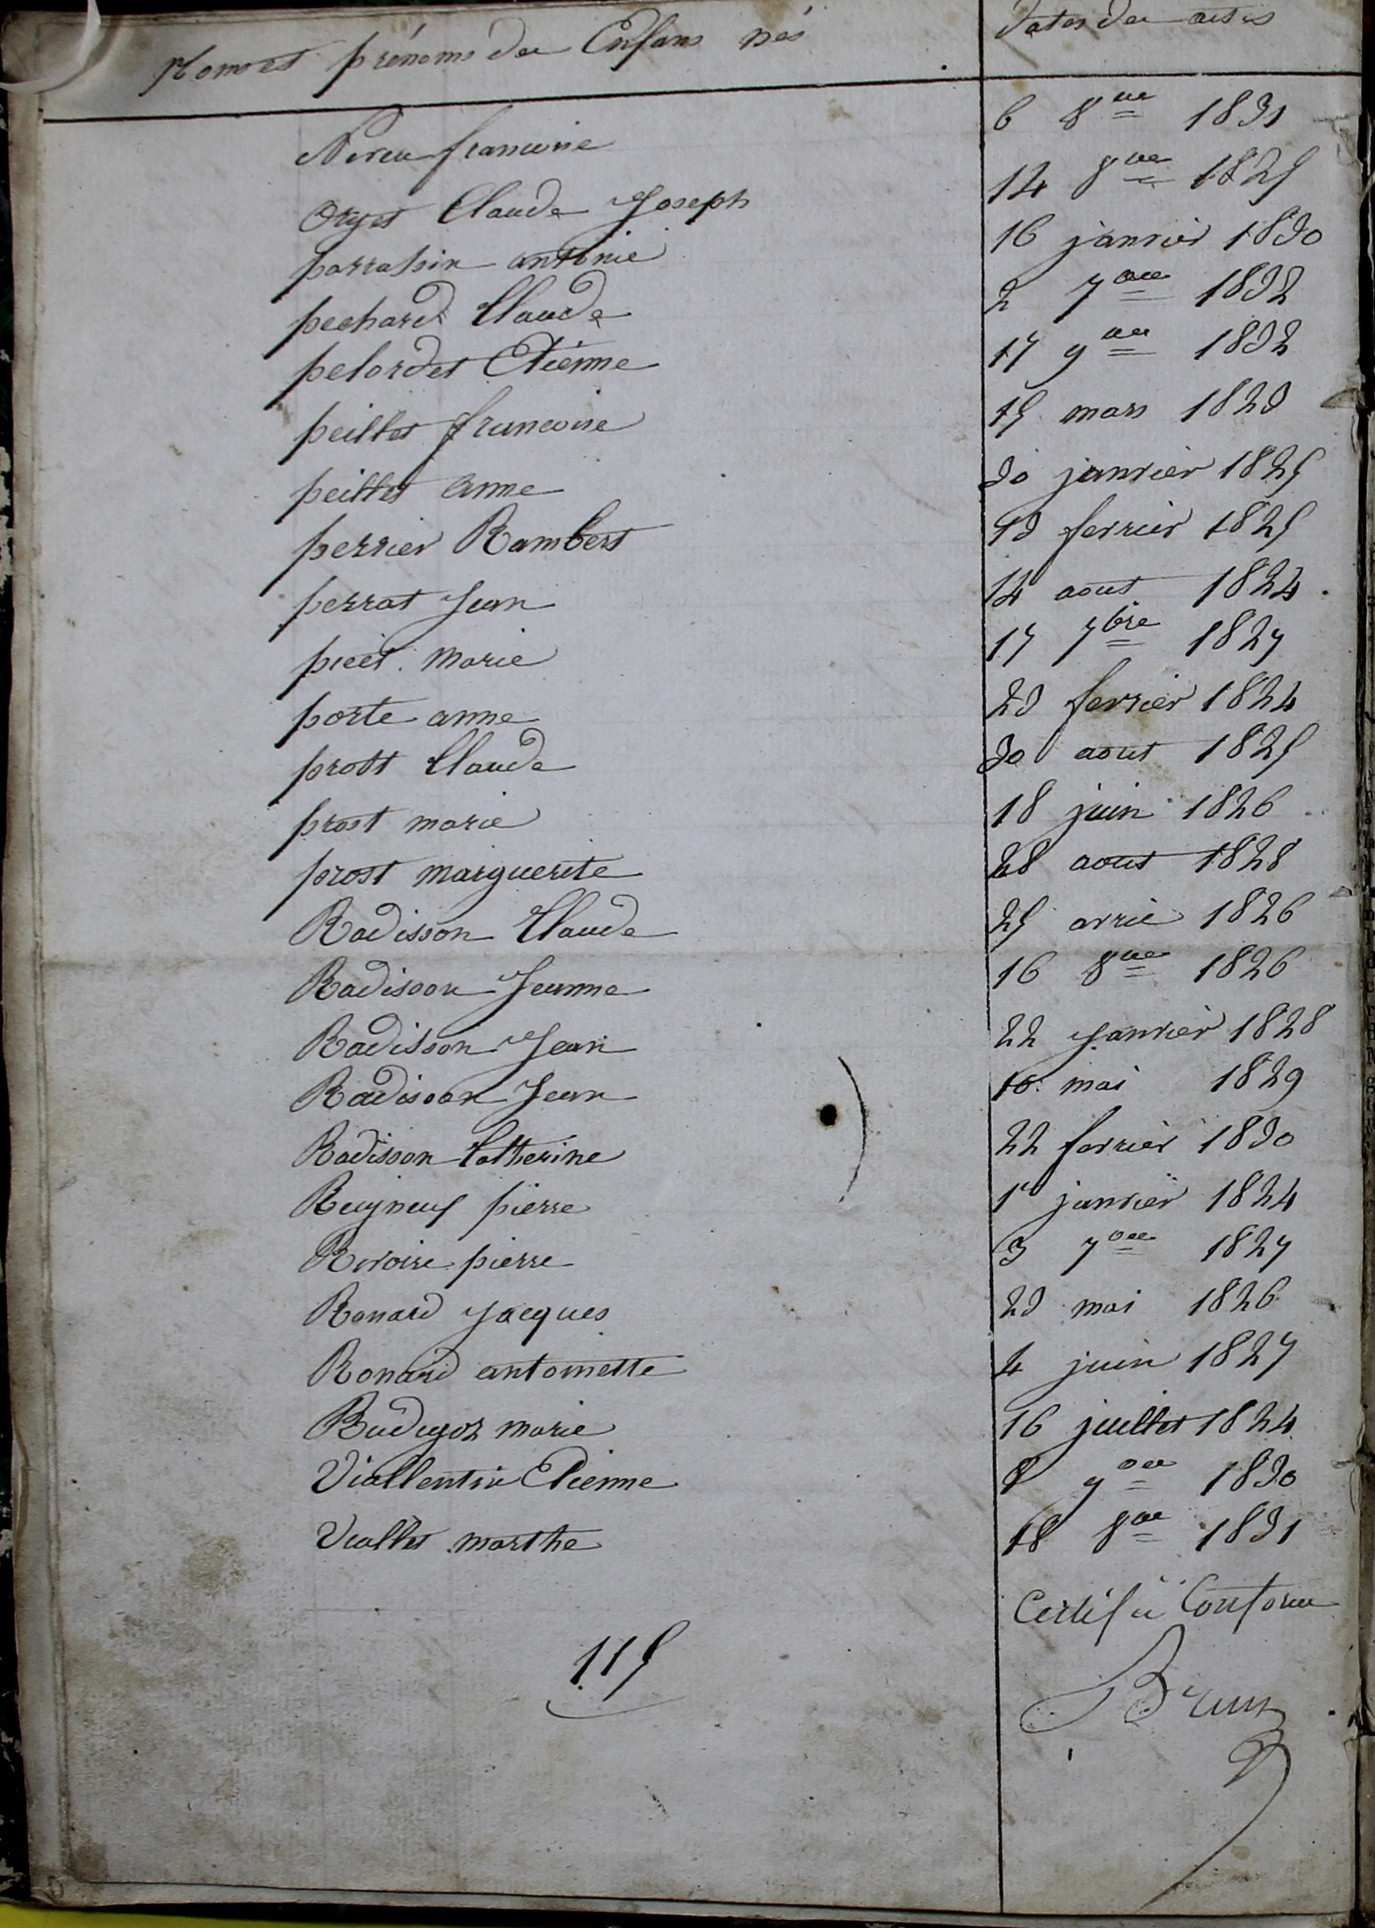 Noms et prénoms des Enfans nés dates des actes
Neveu francoise 6 8bre 1831
Oryet Claude Joseph 14 8bre 1825
parrassin antoinie 16 janvier 1830
pechard Claude 2 7bre 1832
pelordet Etienne 17 9bre 1832
peillet francoise 15 mars 1823
peillet anne 30 janvier 1825
perrier Rambert 13 fevrier 1825
perrat Jean 14 aout 1824
picet marie 17 7bre 1827
porte anne 23 fevrier 1824
prost Claude 30 aout 1825
prost marie 18 juin 1826
prost marguerite 28 aout 1828
Radisson Claude 25 avril 1826
Radisson Jeanne 16 8bre 1826
Radisson Jean 22 Janvier 1828
Radisson Jean 10 mai 1829
Radisson Catherine 22 fevrier 1830
Reigneuf pierre 1er janvier 1824
Revoire pierre 3 7bre 1827
Ronard Jacques 23 mai 1826
Ronard antoinette 4 juin 1827
marie 16 juillet 1824
Viallentin Etienne 8 9bre 1830
Viallet marthe 18 8bre 1831
Certifié Conforme
115
Brun